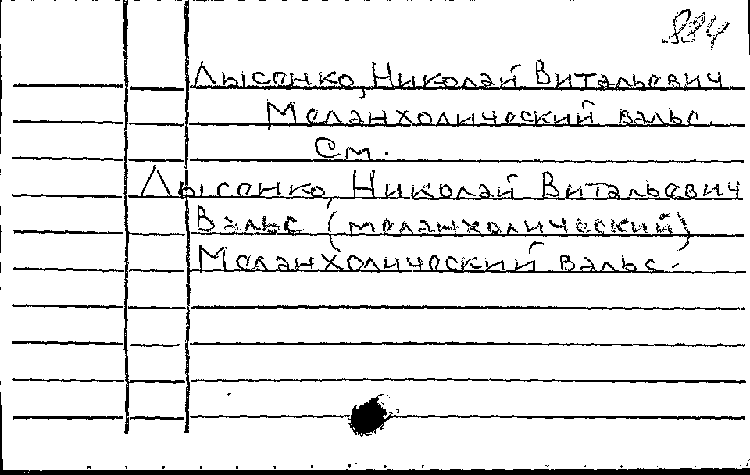 884
Лысенко, Николай Витальевич
Меланхолический вальс.
См.
Лысенко, Николай Витальевич
Вальс (меланхолический)
Меланхолический вальс.